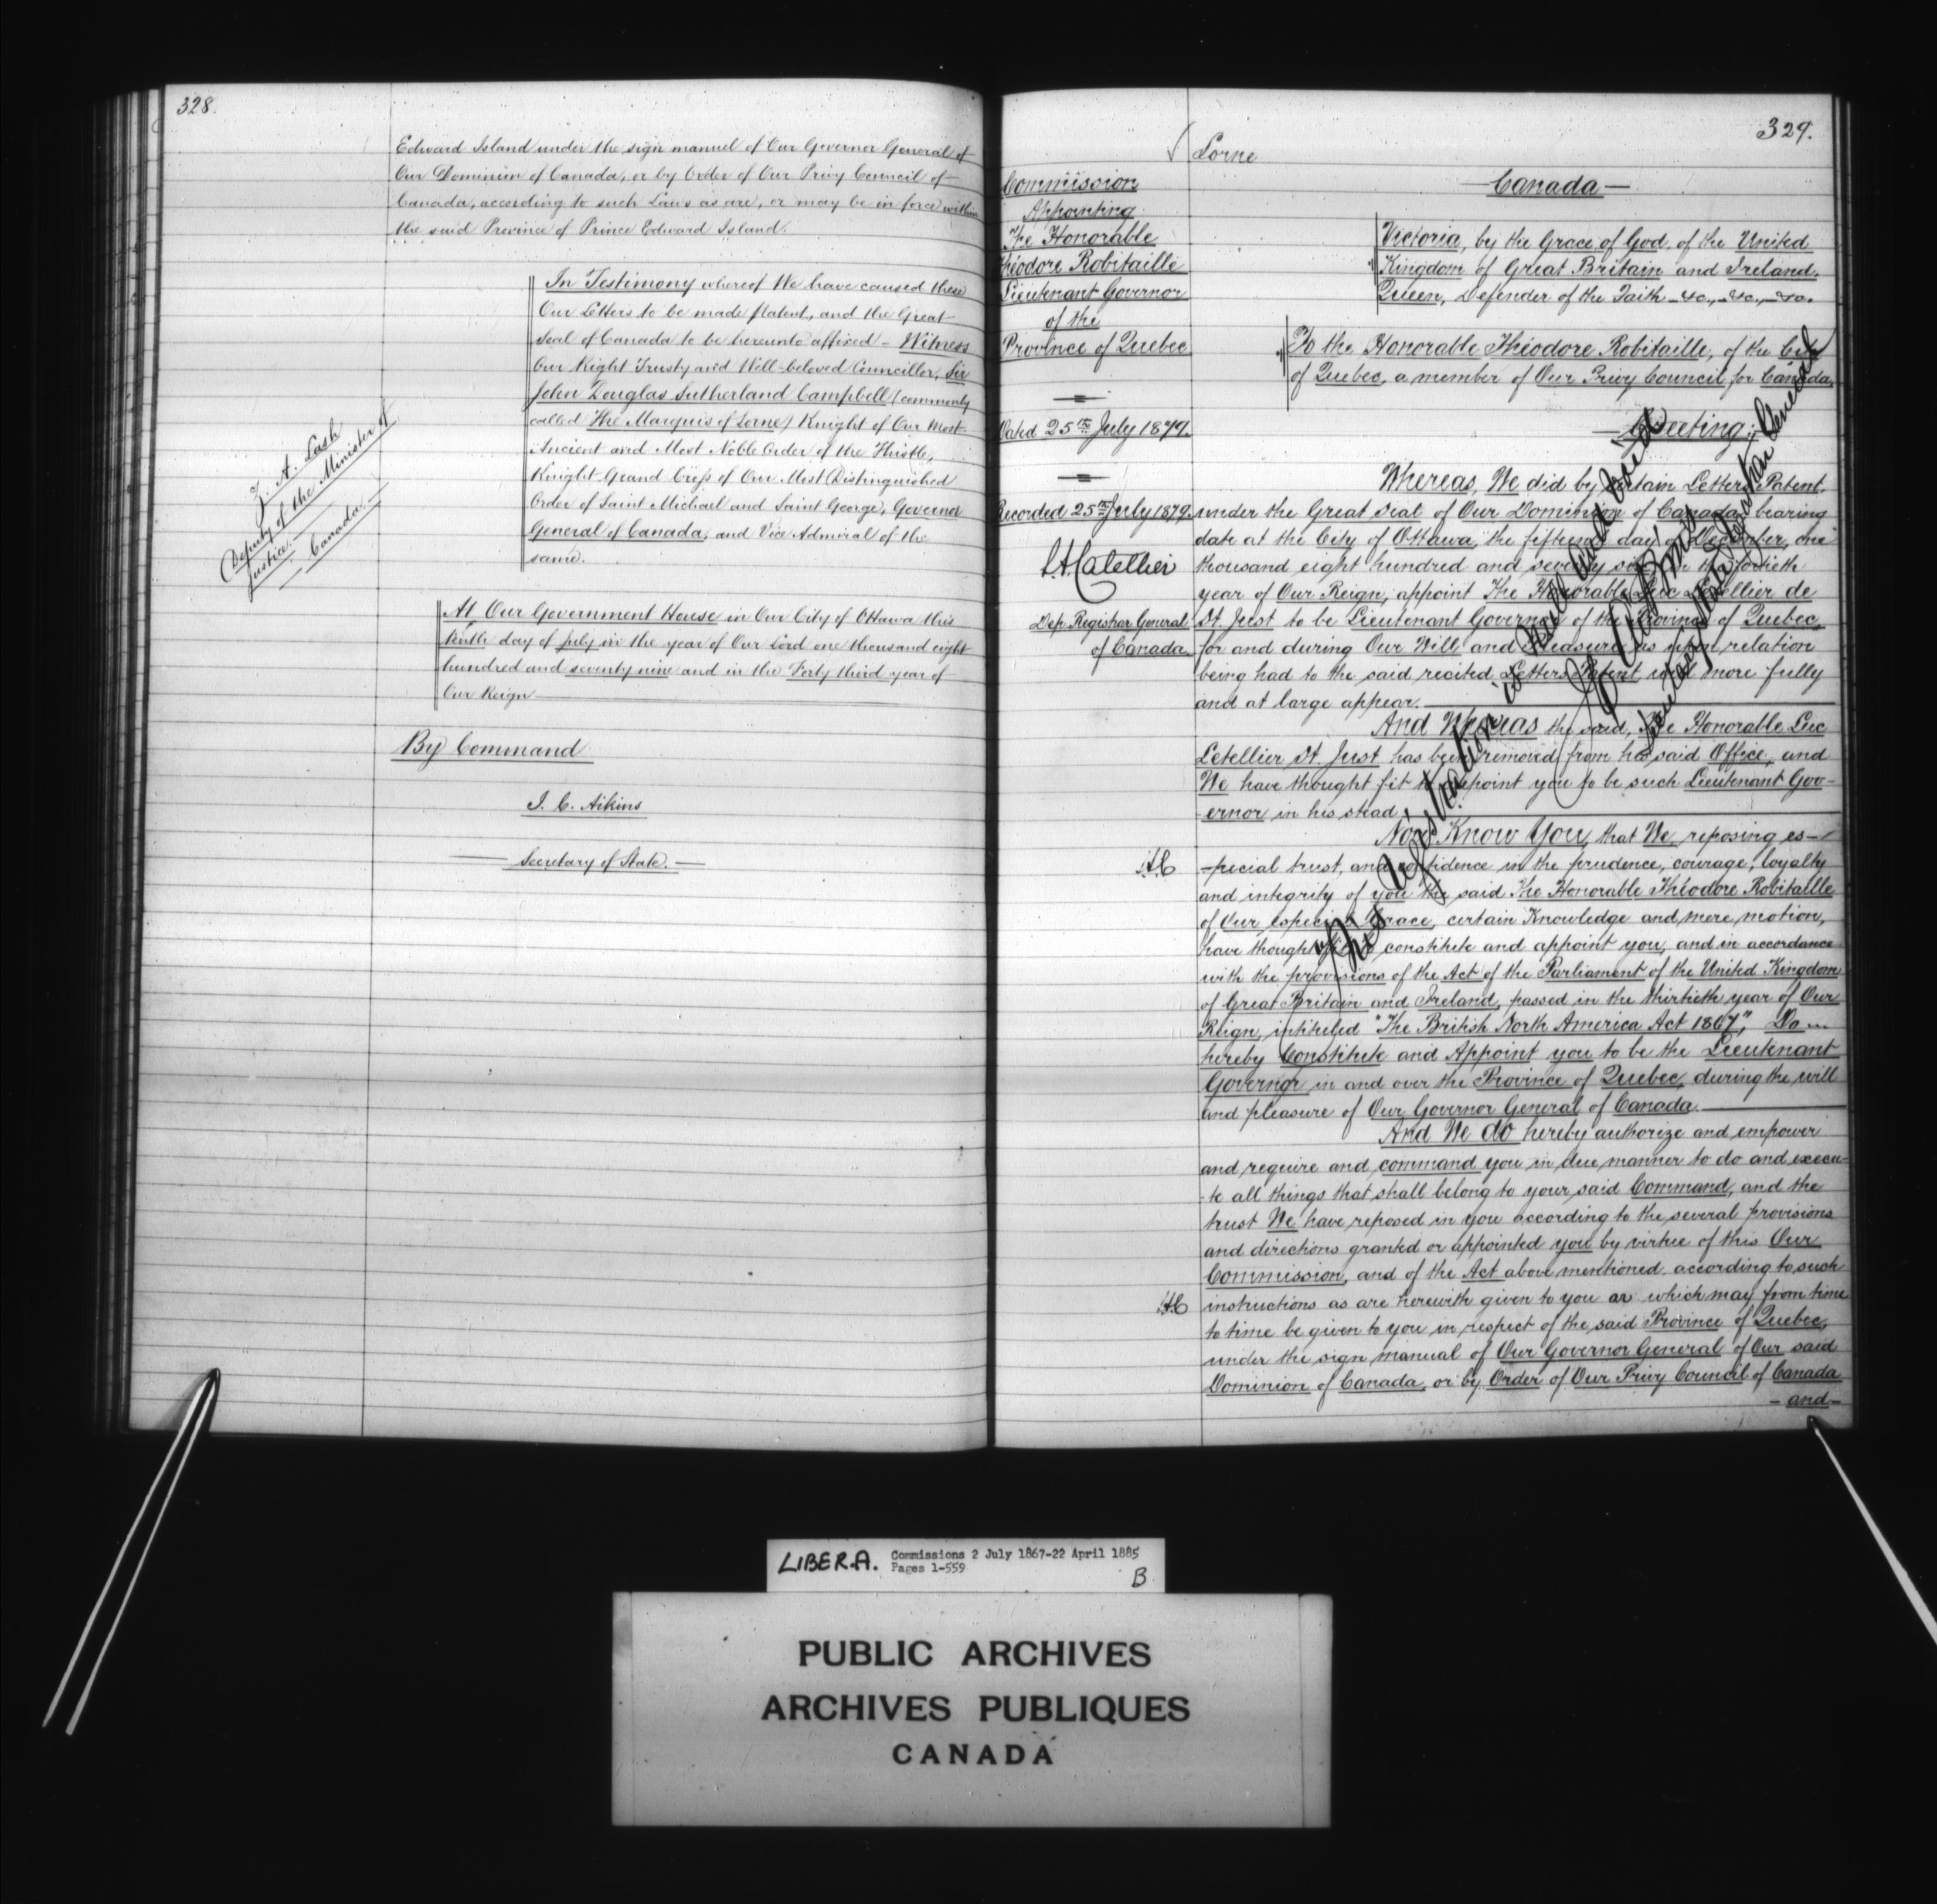 328.
Edward Island under the sign manuel of Our Governor General of
Our Dominion of Canada, or by Order of Our Privy Council of
Canada, according to such Laws as are, or may be in force within
the said Province of Prince Edward Island.
In Testimony whereof We have caused these
Our Letters to be made Patent, and the Great
Seal of Canada to be hereunto affixed - Witness
Our Right Trusty and Well-beloved Councillor, Sir
John Douglas Sutherland Campbell (commonly
called The Marquis of Lorne) Knight of Our Most
Ancient and Most Noble Order of the Thistle,
Knight Grand Cross of Our Most Distinguished
Order of Saint Michael and Saint George, Governor
General of Canada, and Vice Admiral of the
same.
Z. A. Lash
(Deputy of the Minister of
Justice
Canada
At Our Government House in Our City of Ottawa this
day of July in the year of Our Lord one thousand eight
hundred and seventy nine and in the Forty third year of
Our Reign
By Command
J. C. Aikins
Secretary of State.
329.
Lorne
Commission
Appointing
The Honorable
Théodore Robitaille
Lieutenant Governor
of the
Province of Quebec
Dated 25th July 1879.
Recorded 25th July 1879.
L. H. Catellier
Dep. Registrar General
of Canada
Canada
Victoria, by the Grace of God, of the United
Kingdom of Great Britain and Ireland,
Queen, Defender of the Faith &c., &c., &c.
To the Honorable Théodore Robitaille, of the City
of Quebec, a member of Our Privy Council for Canada,
Greeting:
Whereas, We did by certain Letters Patent,
under the Great Seal of Our Dominion of Canada, bearing
date at the City of Ottawa, the fifteenth day of December, one
thousand eight hundred and seventy six, in the fortieth
year of Our Reign, appoint The Honorable Luc Letellier de
St. Just to be Lieutenant Governor of the Province of Quebec,
for and during Our Will and Pleasure as upon relation
being had to the said recited Letters Patent will more fully
and at large appear.
And Whereas the said, The Honorable Luc
Letellier St. Just has been removed from his said Office, and
We have thought fit to appoint you to be such Lieutenant Gov-
-ernor in his stead
Now Know You, that We, reposing es-
-pecial trust, and confidence in the prudence, courage, loyalty
and integrity of you the said The Honorable Théodore Robitaille
of Our especial Grace, certain Knowledge and mere motion,
have thought fit to constitute and appoint you, and in accordance
with the provisions of the Act of the Parliament of the United Kingdom
of Great Britain and Ireland, passed in the thirtieth year of Our
Reign, intituled "The British North America Act 1867", Do
hereby Constitute and Appoint you to be the Lieutenant
Governor in and over the Province of Quebec, during the will
and pleasure of Our Governor General of Canada.
And We do hereby authorize and empower
and require and command you in due manner to do and execu-
-te all things that shall belong to your said Command, and the
trust We have reposed in you according to the several provisions
and directions granted or appointed you by virtue of this Our
Commission, and of the Act above mentioned, according to such
instructions as are herewith given to you or which may from time
to time be given to you in respect of the said Province of Quebec,
under the sign manual of Our Governor General of Our said
Dominion of Canada, or by Order of Our Privy Council of Canada
- and -
This registration is null and void
LIBER.A. Commissions 2 July 1867-22 April 1885
Pages 1-559
B
PUBLIC ARCHIVES
ARCHIVES PUBLIQUES
CANADA